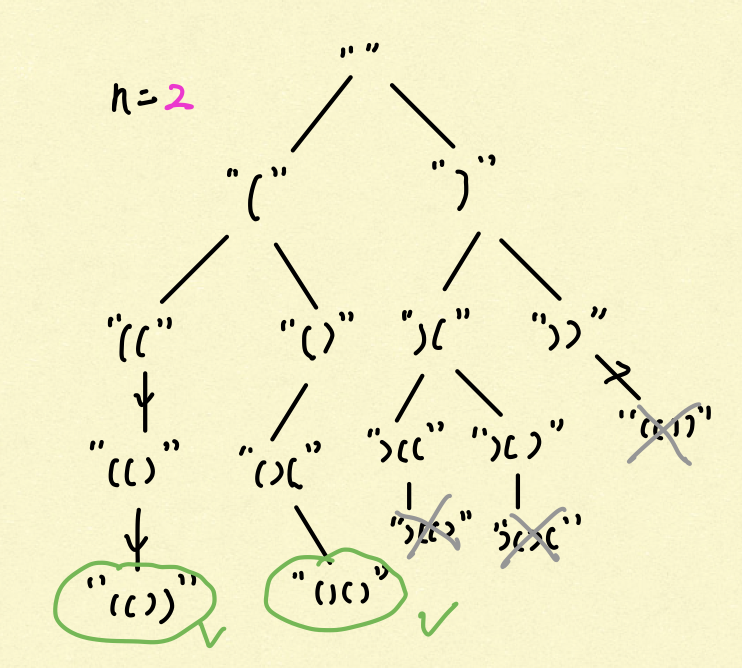 " "
n=2
"(" ")"
"((" "()" ")(" "))"
"(()" "()(" ")((" ")()"
"(())" "()()" ")()("